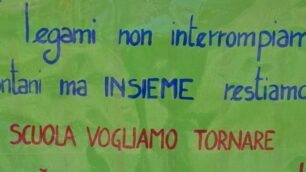 Legami non interrompiam
ntani ma INSIEME restiamo
SCUOLA VOGLIAMO TORNARE